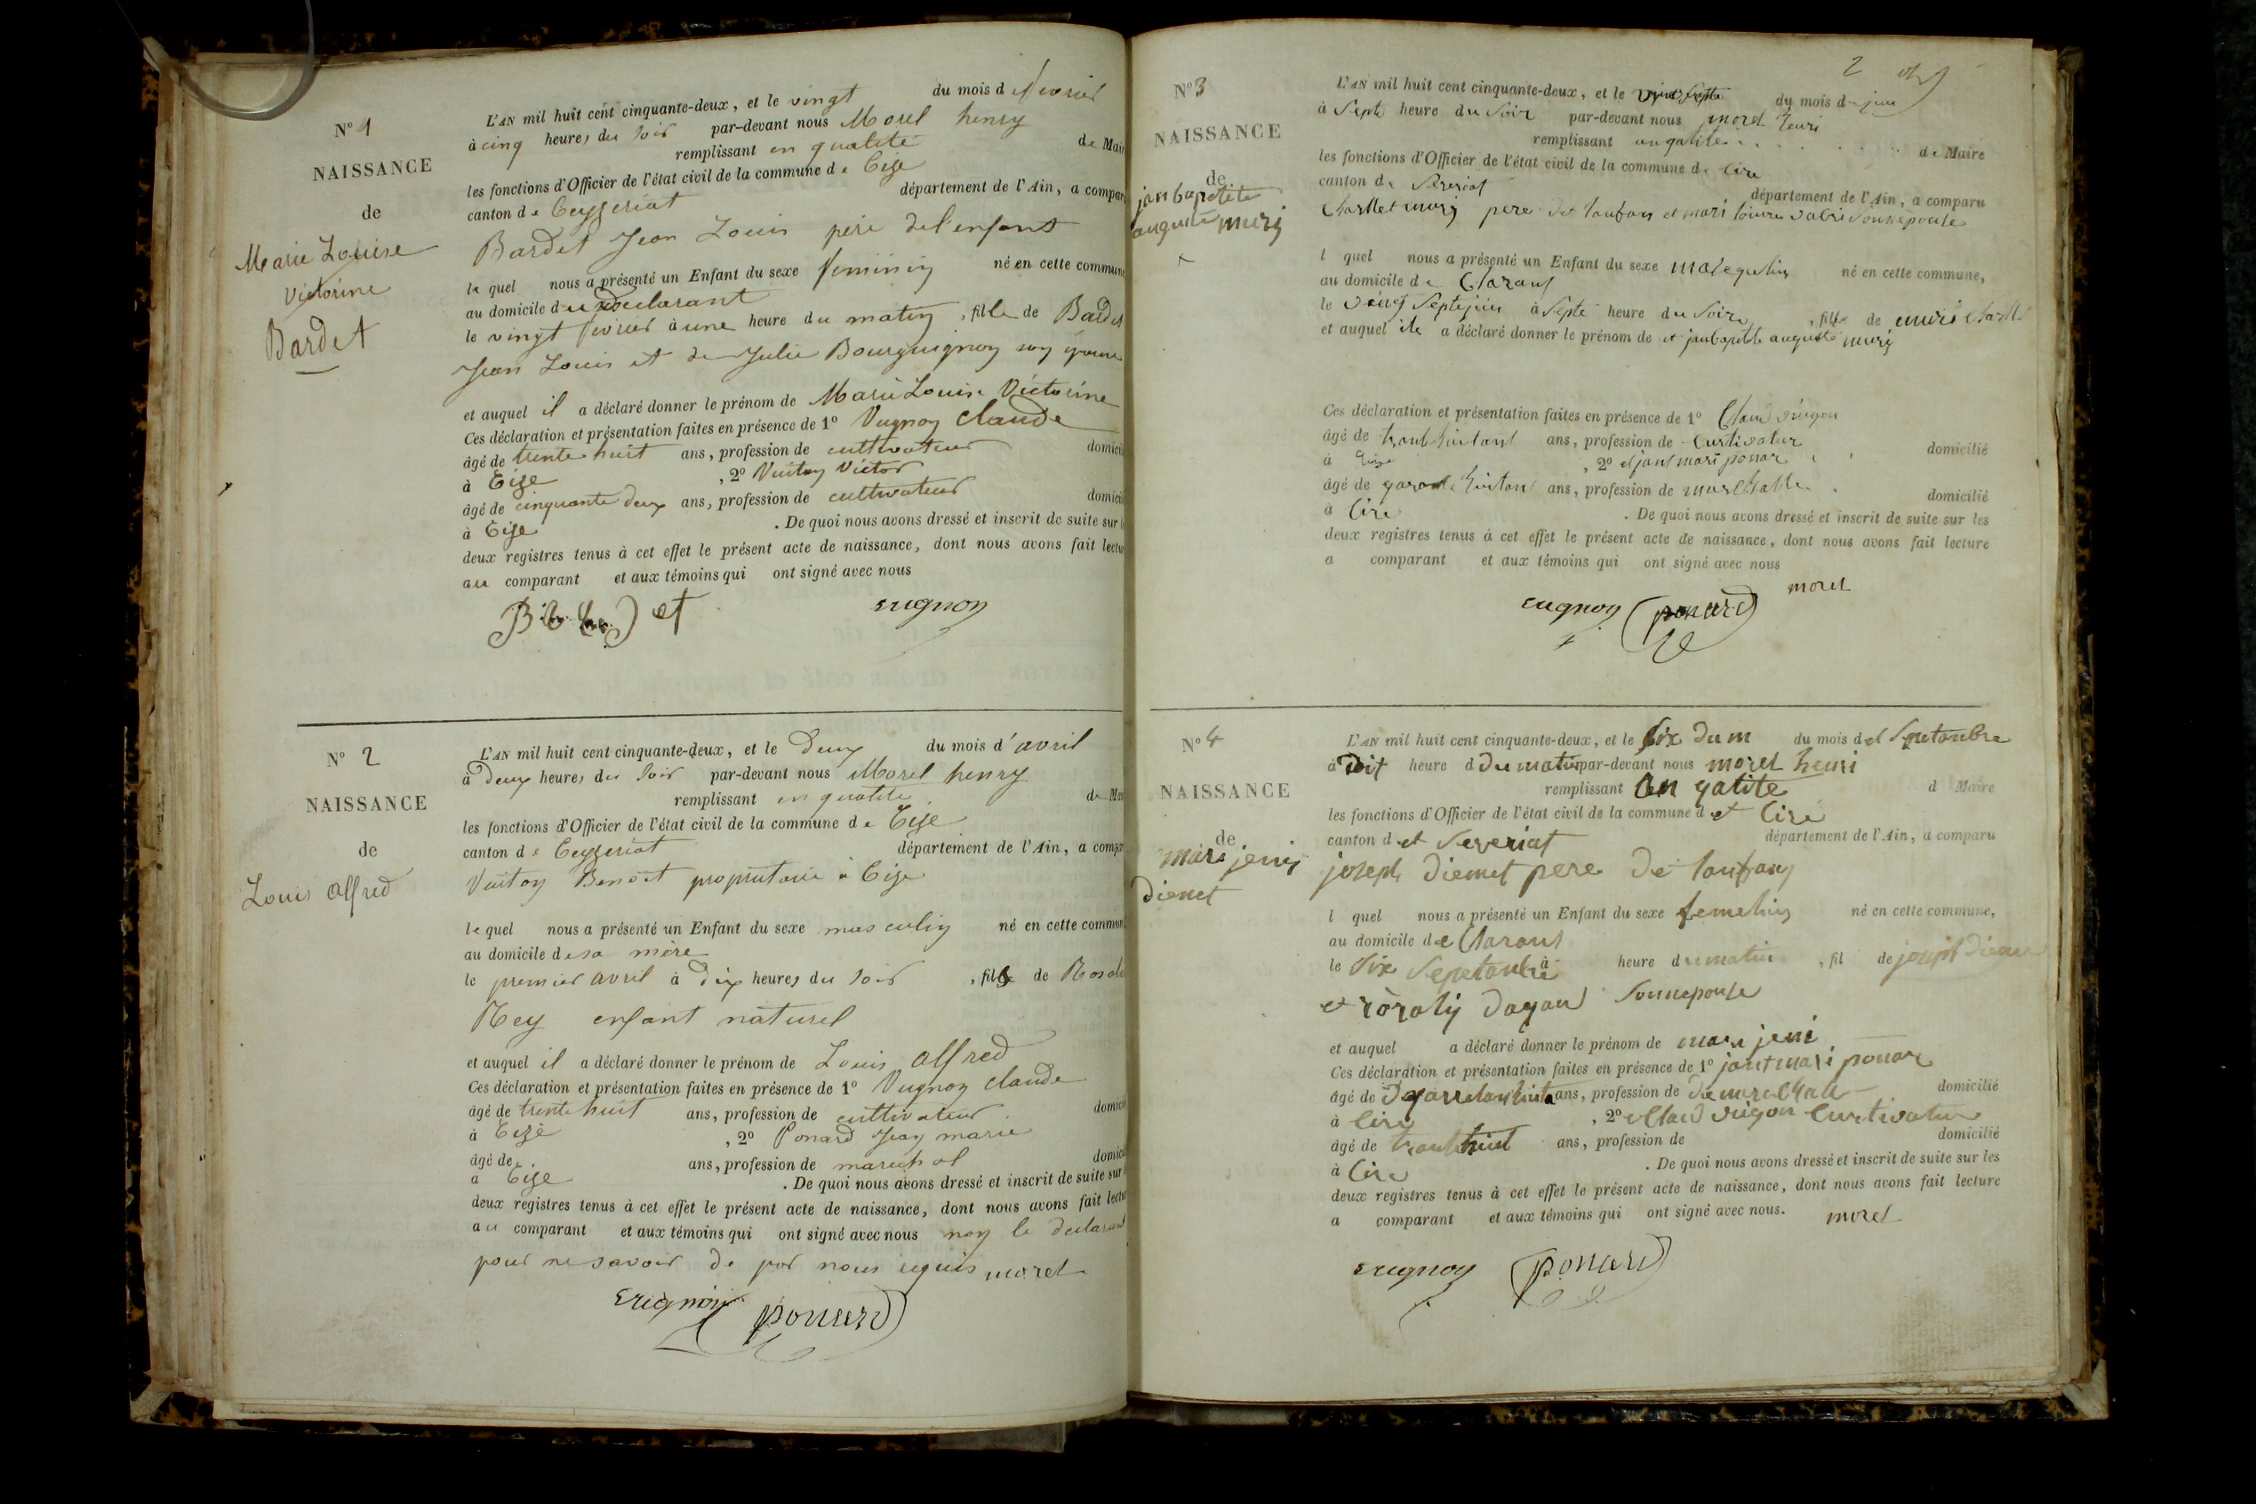 N° 1
NAISSANCE
de
Marie Louise
Victorine
Bardet
L'AN mil huit cent cinquante-deux, et le vingt du mois de fevrier
à cinq heures du soir par-devant nous Morel henry
remplissant en qualité de Mair
les fonctions d'Officier de l'état civil de la commune de Cize
canton de Ceyzeriat département de l'Ain, a compar
Bardet Jean Louis père de l'enfant
le quel nous a présenté un Enfant du sexe feminin né en cette commune
au domicile du declarant
le vingt fevrier à une heure du matin, fille de Bardet
Jean Louis et de Julie Bourguignon son épouse
et auquel il a déclaré donner le prénom de Marie Louise Victorine
Ces déclaration et présentation faites en présence de 1° Vugnon Claude
âgé de trente huit ans, profession de cultivateur domicil
à Cize, 2° Vuiton Victor
âgé de cinquante deux ans, profession de cultivateur domicil
à Cize. De quoi nous avons dressé et inscrit de suite sur l
deux registres tenus à cet effet le présent acte de naissance, dont nous avons fait lectu
au comparant et aux témoins qui ont signé avec nous
N° 2
NAISSANCE
de
Louis alfred
L'AN mil huit cent cinquante-deux, et le deux du mois d'avril
à deux heures du soir par-devant nous Morel henry
remplissant en qualité de Mai
les fonctions d'Officier de l'état civil de la commune de Cize
canton de Ceyzeriat département de l'Ain, a compar
Vuiton Benoit propriétaire à Cize
le quel nous a présenté un Enfant du sexe masculin né en cette commun
au domicile de sa mère
le premier avril à dix heures du soir, fils de Rosali
Rey enfant naturel
et auquel il a déclaré donner le prénom de Louis alfred
Ces déclaration et présentation faites en présence de 1° Vugnon claude
âgé de trente huit ans, profession de cultivateur domicil
à Cize, 2° Ponard Jean marie
âgé de ans, profession de marechal domicil
à Cize. De quoi nous avons dressé et inscrit de suite sur
deux registres tenus à cet effet le présent acte de naissance, dont nous avons fait lectu
au comparant et aux témoins qui ont signé avec nous non le declarant
pour ne savoir de par nous requis morel
ponard
2
N° 3
NAISSANCE
de
janbaptite
auguste murij
L'AN mil huit cent cinquante-deux, et le vint septe du mois de juin
à Septe heure du Soir par-devant nous morel henri
remplissant an qalité de Maire
les fonctions d'Officier de l'état civil de la commune de Cize
canton de Severiat département de l'Ain, a comparu
Charlle murij pere de lanfan et mari
l quel nous a présenté un Enfant du sexe né en cette commune,
au domicile de Clarant
le vint Septe juin à Septe heure du Soire, fils de muri Charlle
et auquel ile a déclaré donner le prénom de et janbaptite auguste murij
Ces déclaration et présentation faites en présence de 1° Claud viigon
âgé de ans, profession de Curtivatur domicilié
à Cize, 2° et jant mari ponar
âgé de ans, profession de marchalle domicilié
à Cize. De quoi nous avons dressé et inscrit de suite sur les
deux registres tenus à cet effet le présent acte de naissance, dont nous avons fait lecture
a comparant et aux témoins qui ont signé avec nous
morel
ponard
N° 4
NAISSANCE
de
mari jenij
dienet
L'AN mil huit cent cinquante-deux, et le Six du m du mois d el Septanbre
à dit heure d du matin par-devant nous morel henri
remplissant An qatite d Maire
les fonctions d'Officier de l'état civil de la commune d et Cize
canton d et Severiat département de l'Ain, a comparu
joseph diemet pere de lanfanj
l quel nous a présenté un Enfant du sexe femelin né en cette commune,
au domicile de Clarant
le Six Septanbre à heure du matin, fil de joseph
et rozalij Sonnepouse
et auquel a déclaré donner le prénom de mari jeni
Ces déclaration et présentation faites en présence de 1° jant mari ponar
âgé de ans, profession de de marchall domicilié
à Cize, 2° Claud viigon Curtivatur
âgé de ans, profession de domicilié
à Cize. De quoi nous avons dressé et inscrit de suite sur les
deux registres tenus à cet effet le présent acte de naissance, dont nous avons fait lecture
a comparant et aux témoins qui ont signé avec nous. morel
ponard